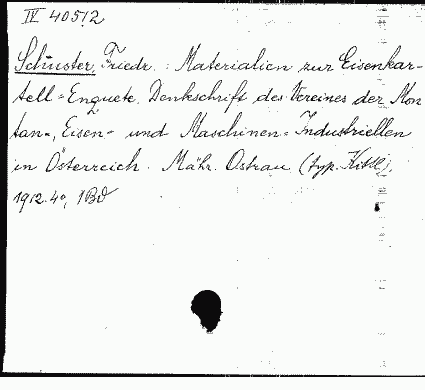 IV 40512
Schuster, Friedr.: Materialien zur Eisenkar-
tell-Enquete. Denkschrift des Vereines der Mon
tan-, Eisen- und Maschinen-Industriellen
in Österreich. Mähr. Ostrau (typ. Kittl),
1912. 4°, 1 Bd